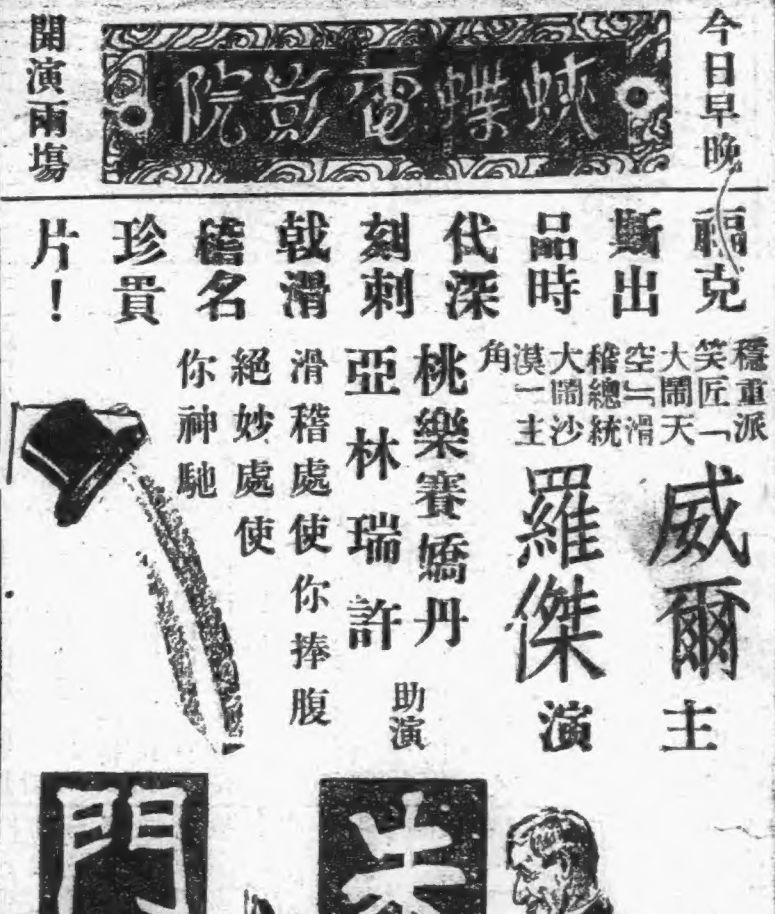 今日早晚
蛺蝶電影院
開演兩塲
福克
斷出
品時
代深
刻刺
戟滑
稽名
珍貴
片！
穩重派
笑匠「
大鬧天
空」「滑
稽總統
大鬧沙
漠」主
角
威爾主
羅傑演
桃樂賽嬌丹
亞林瑞許
助演
滑稽處使你捧腹
絕妙處使
你神馳
朱
門